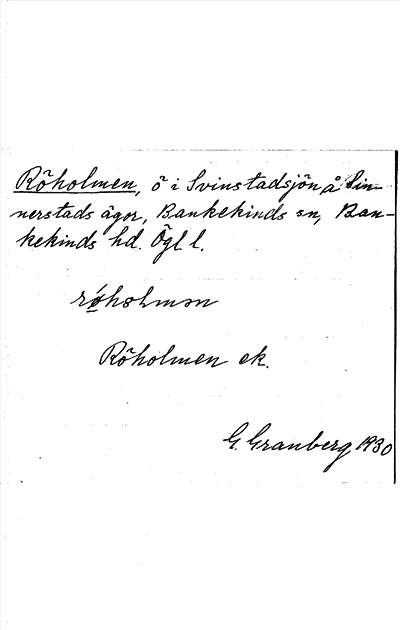 Röholmen, ö i Svinstadsjön å Sin-
nerstads ägor, Bankekinds sn, Ban-
kekinds hd. Ögl l.
Röholmen ek.
G. Granberg 1930